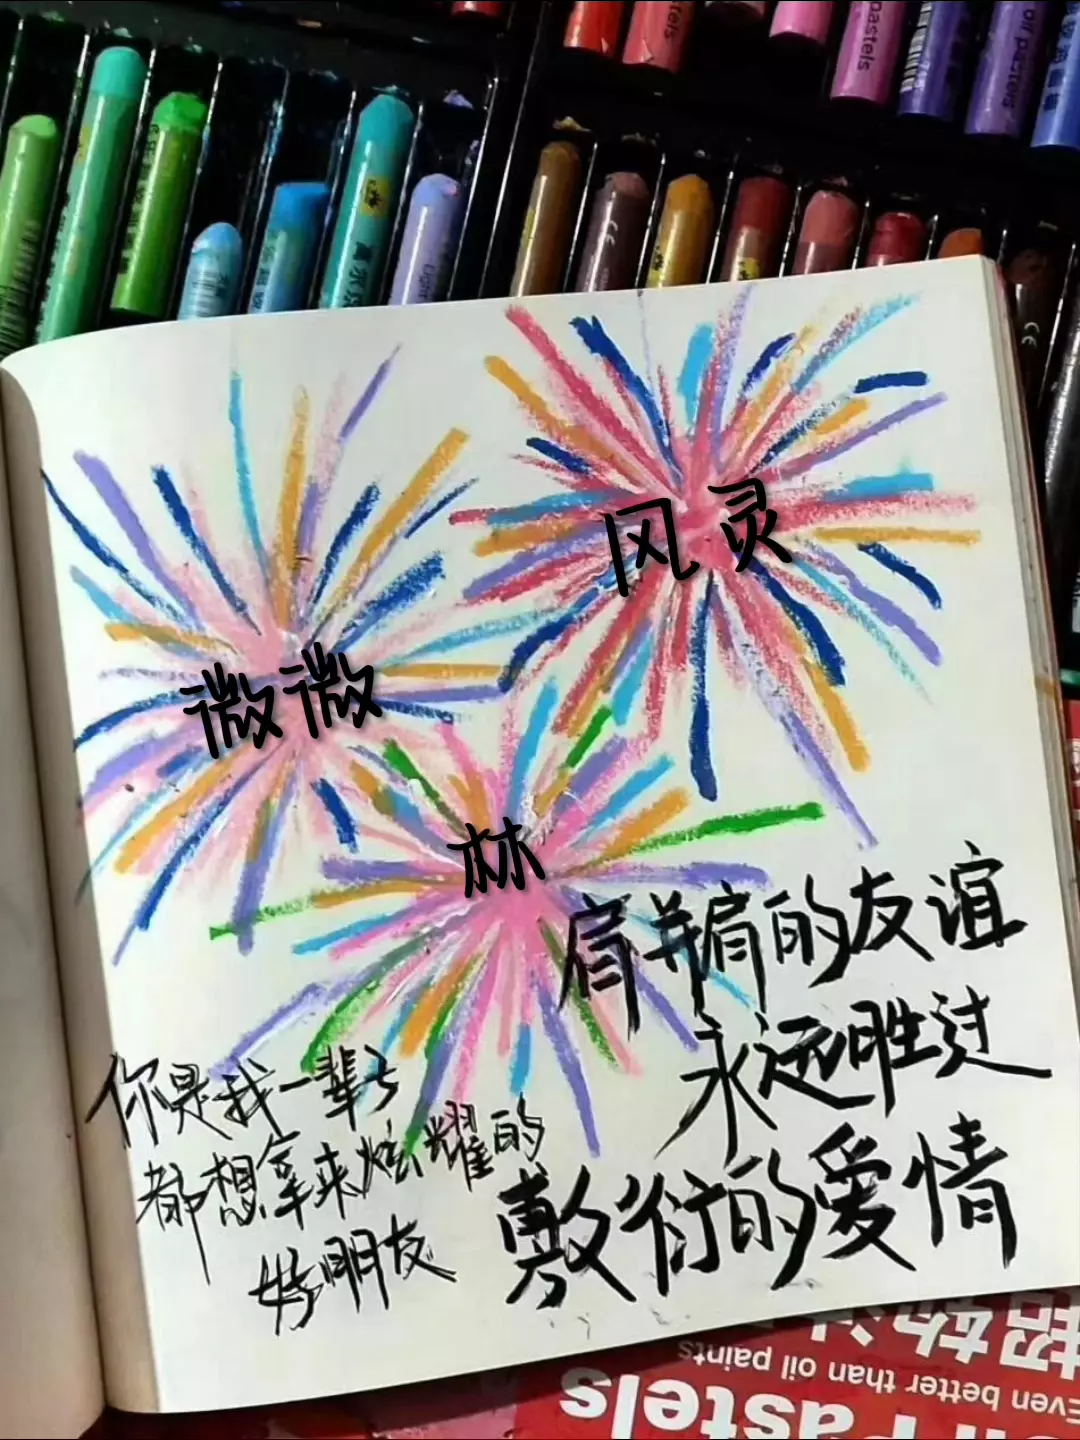 pastels
oil pastels
风灵
微微
林
肩并肩的友谊
永远胜过
敷衍的爱情
你是我一辈子
都想拿来炫耀的
好朋友
Even better than oil paints
Pastels